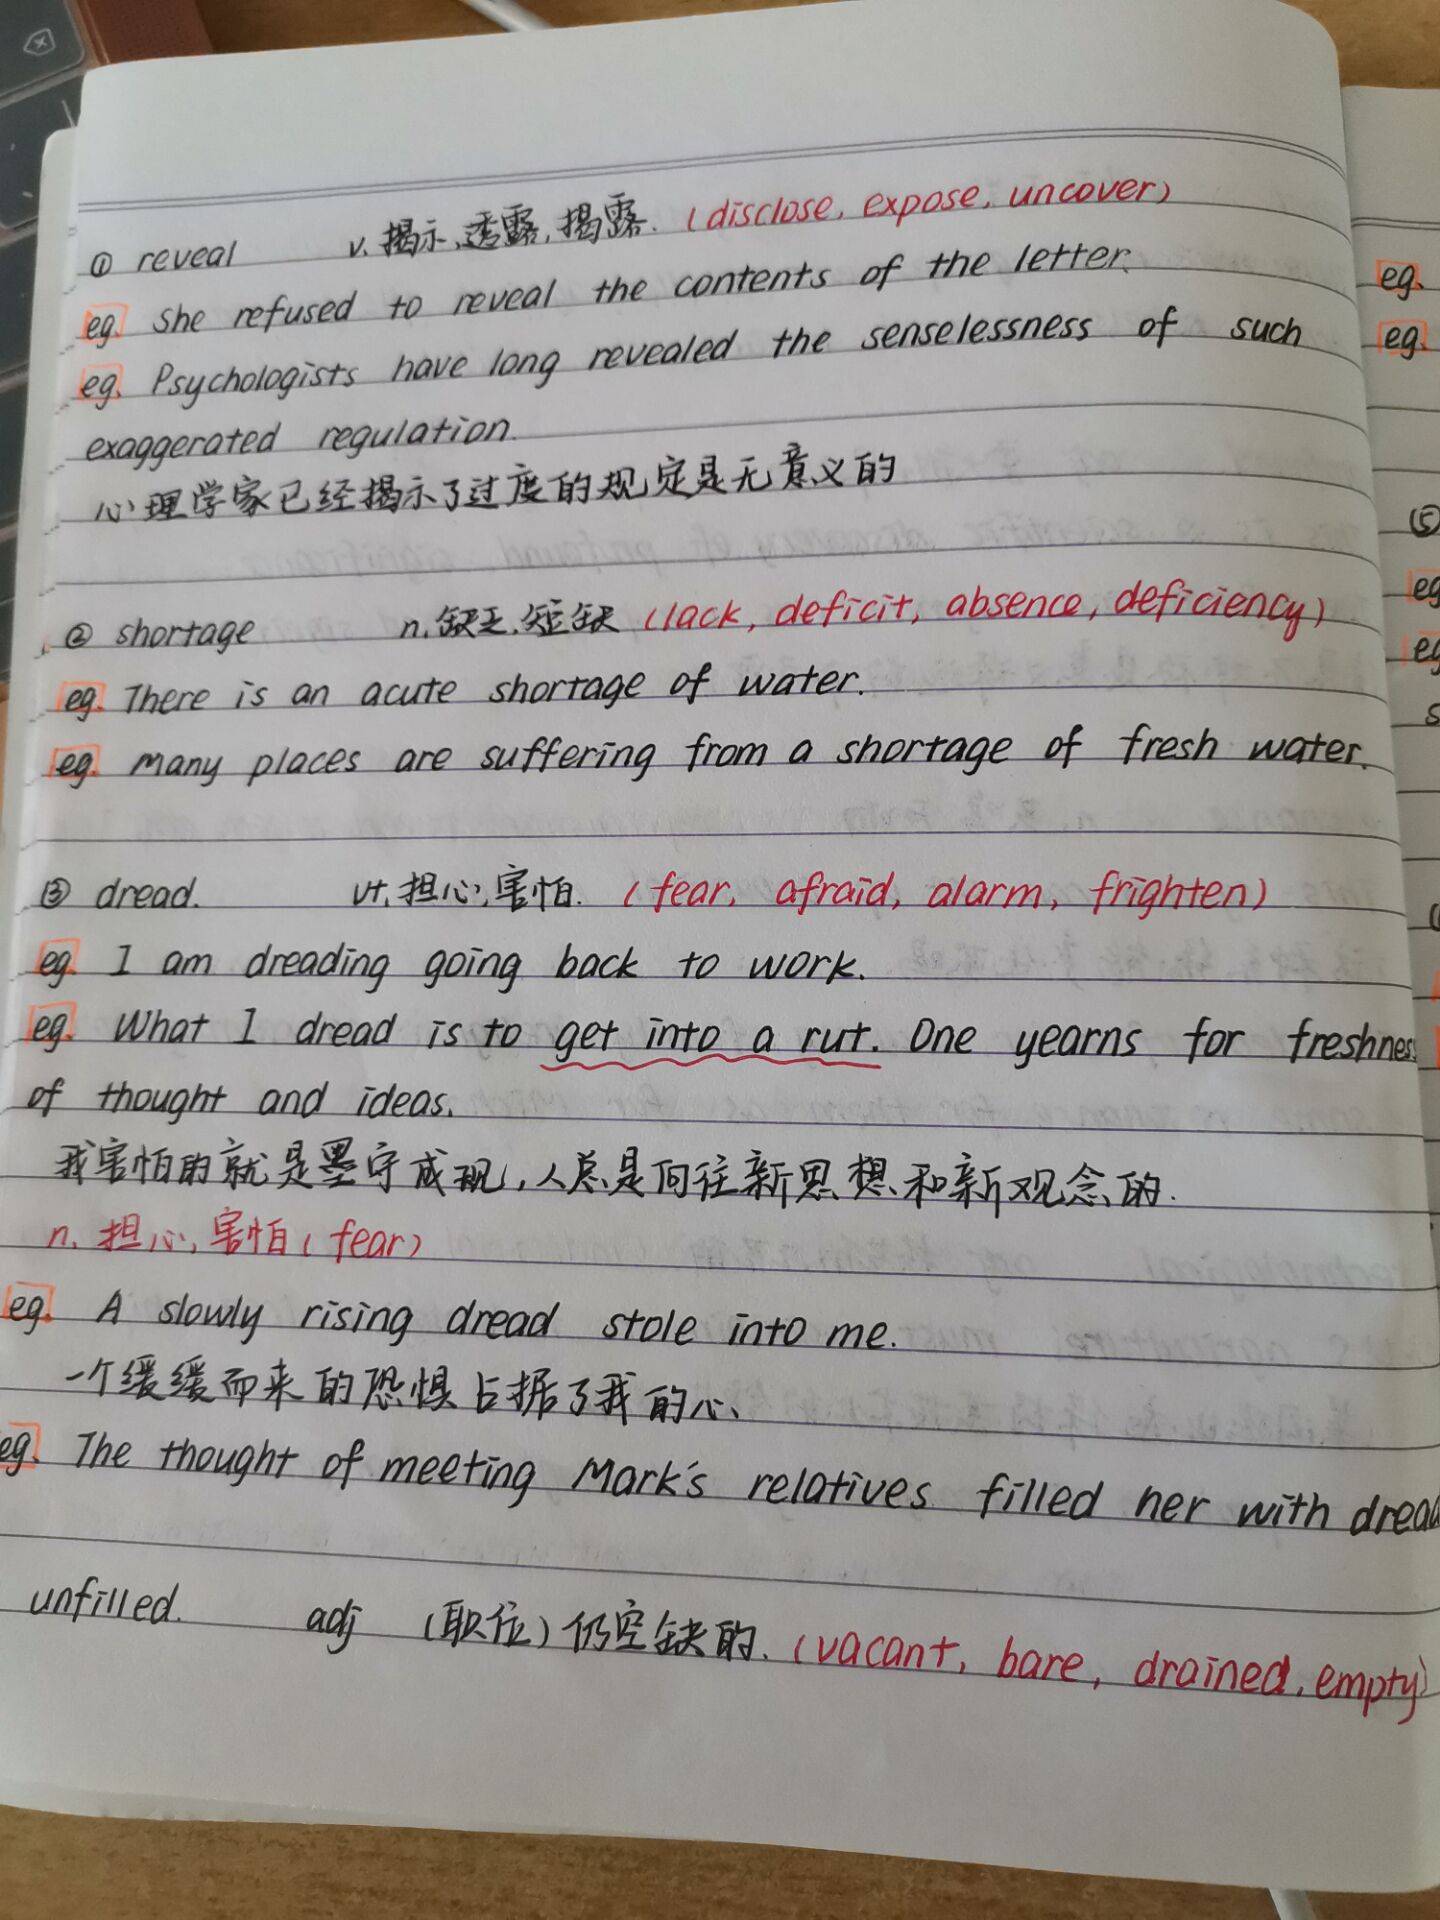 ① reveal v. 揭示,透露,揭露. (disclose, expose, uncover)
eg. She refused to reveal the contents of the letter.
eg. Psychologists have long revealed the senselessness of such
exaggerated regulation.
心理学家已经揭示了过度的规定是无意义的
② shortage n. 缺乏,短缺 (lack, deficit, absence, deficiency)
eg. There is an acute shortage of water.
eg. Many places are suffering from a shortage of fresh water.
③ dread. vt. 担心,害怕. (fear, afraid, alarm, frighten)
eg. I am dreading going back to work.
eg. What I dread is to get into a rut. One yearns for freshness
of thought and ideas.
我害怕的就是墨守成现,人总是向往新思想和新观念的.
n. 担心,害怕 (fear)
eg. A slowly rising dread stole into me.
一个缓缓而来的恐惧占据了我的心、
eg. The thought of meeting Mark's relatives filled her with dread
unfilled. adj (职位)仍空缺的. (vacant, bare, drained, empty)
eg.
eg.
⑤
eg
eg
s